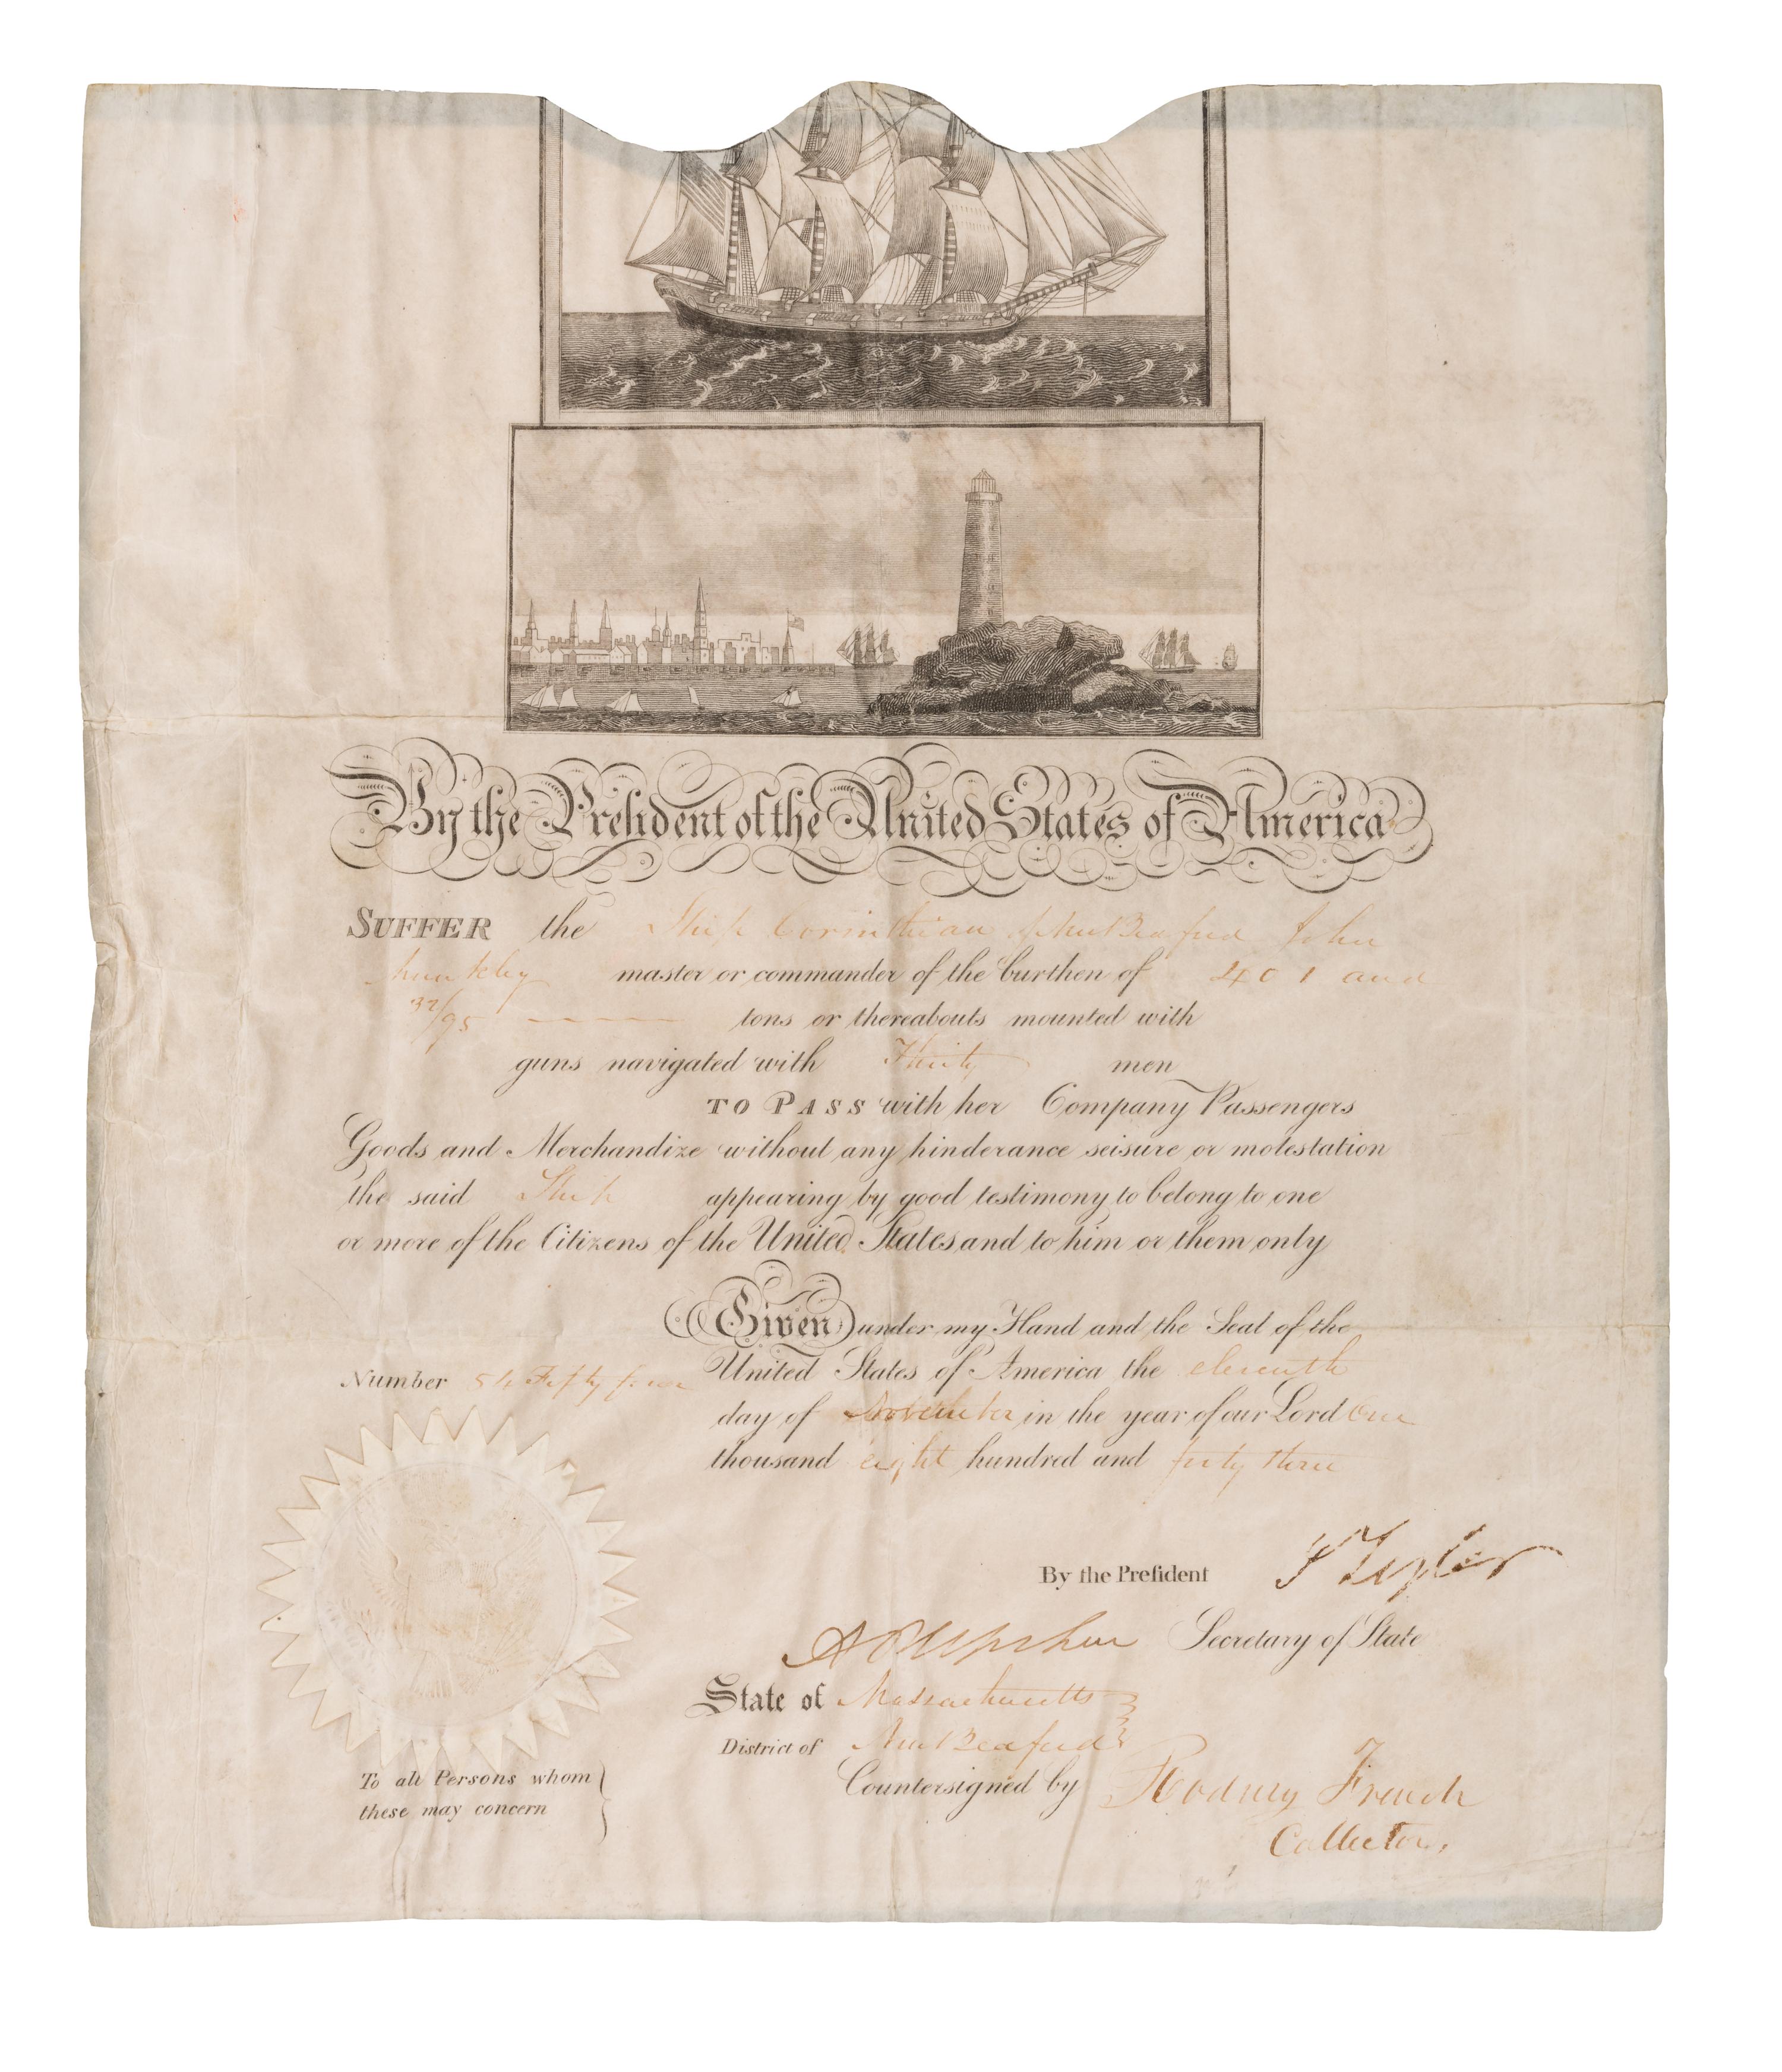 By the President of the United States of America
SUFFER the Ship Corinthian of New Bedford John
master or commander of the burthen of 401 and
32/95 tons or thereabouts mounted with
guns navigated with Thirty men
TO PASS with her Company Passengers
Goods and Merchandize without any hinderance seisure or molestation
the said Ship appearing by good testimony to belong to one
or more of the Citizens of the United States and to him or them only
Given under my Hand and the Seal of the
United States of America the eleventh
Number 54 Fifty four
day of November in the year of our Lord One
thousand eight hundred and forty three
By the President J Tyler
A P Upshur Secretary of State
State of Massachusetts
District of New Bedford
To all Persons whom
these may concern
Countersigned by Rodney French
Collector,